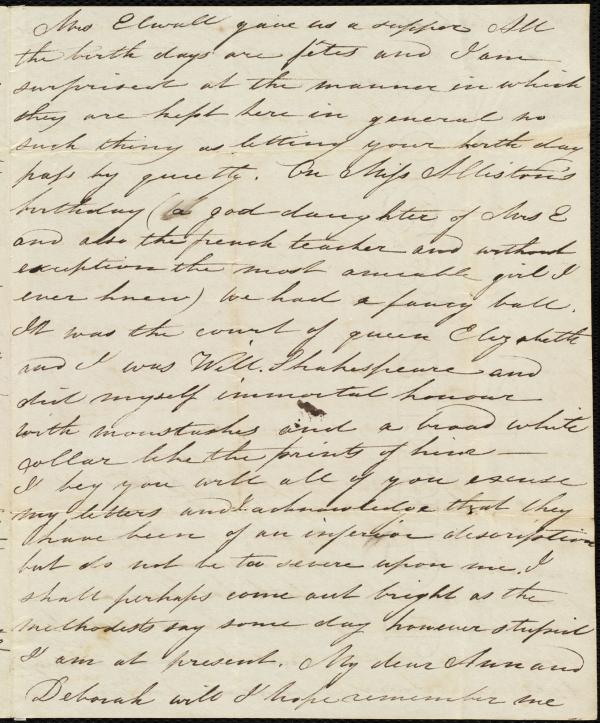 Mrs Elwall gave us a supper All
the birth days are fêtes and I am
surprised at the manner in which
they are kept here in general no
such thing as letting your birth day
pass by quietly. On Miss Alliston's
birthday (a god daughter of Mrs E
and also the french teacher and without
exception the most amiable girl I
ever knew) we had a fancy ball.
It was the court of queen Elizabeth
and I was Will. Shakespeare and
did myself immortal honour
with moustashes and a broad white
collar like the prints of him —
I beg you will all of you excuse
my letters and acknowledge that they
have been of an inferior description
but do not be too severe upon me. I
shall perhaps come out bright as the
methodists say some day however stupid
I am at present. My dear Ann and
Deborah will I hope remember me